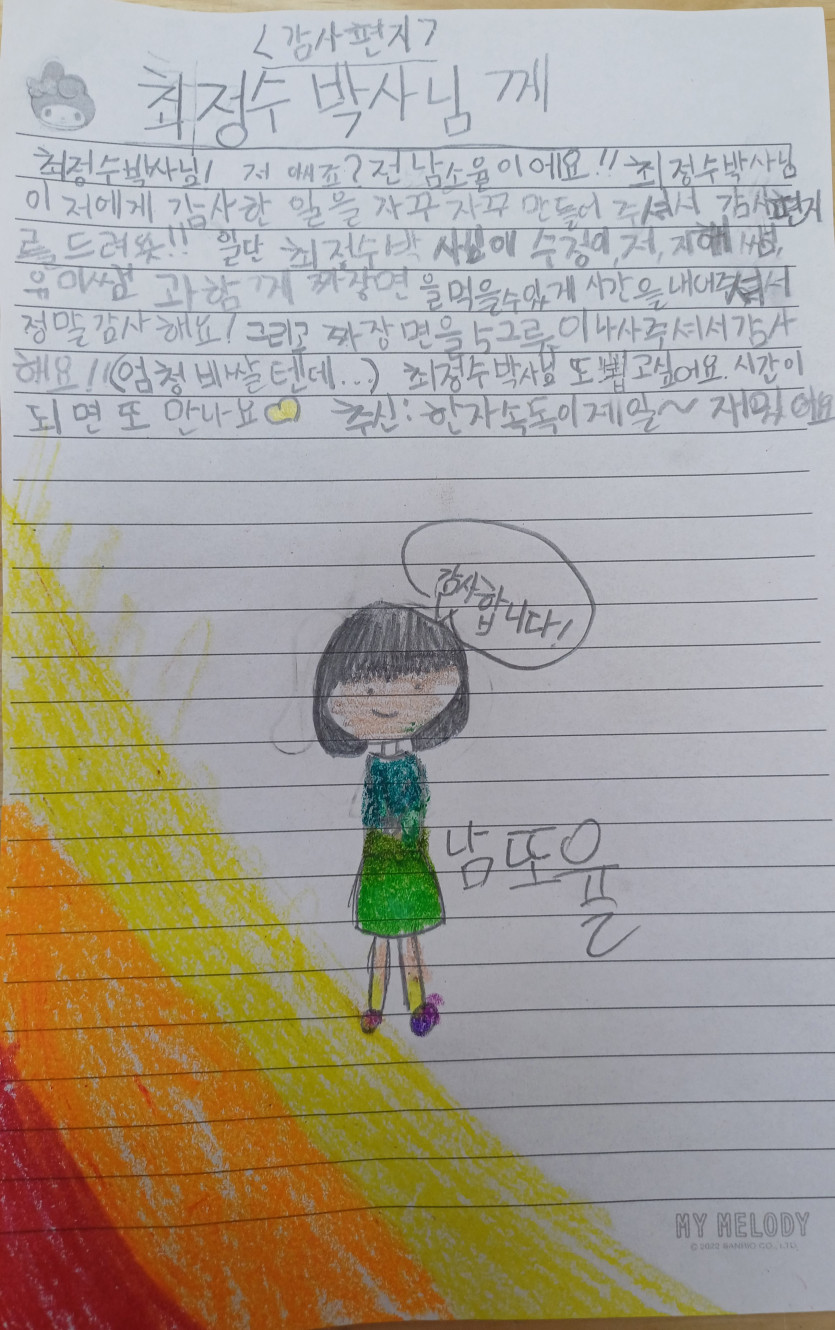 <감사편지>
최정수 박사님께
최정수박사님! 저 아시죠? 전 남소율이에요!! 최정수박사님
이 저에게 감사한 일을 자꾸자꾸 만들어 주셔서 감사편지
를 드려욧!! 일단 최정수박사님애 수정이, 저, 지혜쌤,
유미쌤 과함께 짜장면을먹을수있게 시간을내어주셔서
정말감사해요! 그리고 짜장면을 5그릇이나사주셔서감사
해요!! (엄청 비쌀텐데...) 최정수박사님 또 뵙고싶어요. 시간이
되면 또 만나요 추신: 한자속독이제일~ 재밌어요
감사
합니다!
남또율
MY MELODY
© 2022 SANRIO CO., LTD.